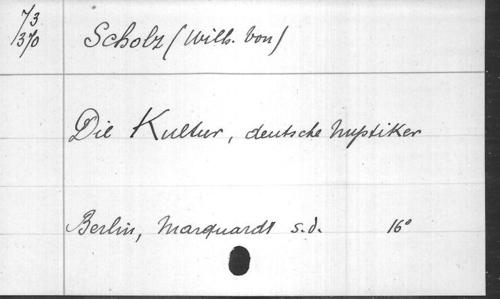 73
1370
Scholz (Wilh. von)
Die Kultur, deutsche Mystiker
Berlin, Marquardt s.d. 16°